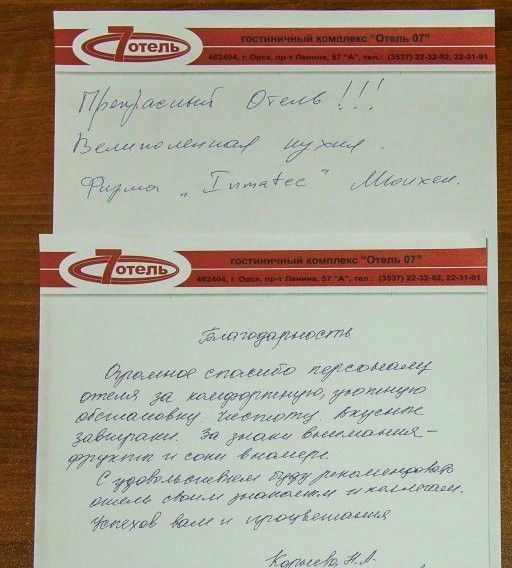 7 отель
гостиничный комплекс "Отель 07"
462404, г. Орск, пр-т Ленина, 57 "А", тел.: (3537) 22-32-52, 22-31-91
Прекрасный Отель!!!
Великолепная кухня.
Фирма „Inmatec" Мюнхен.
7 отель
гостиничный комплекс "Отель 07"
462404, г. Орск, пр-т Ленина, 57 "А", тел.: (3537) 22-32-52, 22-31-91
Благодарность
Огромное спасибо персоналу
отеля за комфортную, уютную
обстановку, чистоту, вкусные
завтраки. За знаки внимания –
фрукты и соки в номере.
С удовольствием буду рекомендовать
отель своим знакомым и коллегам.
Успехов вам и процветания
Н.А.